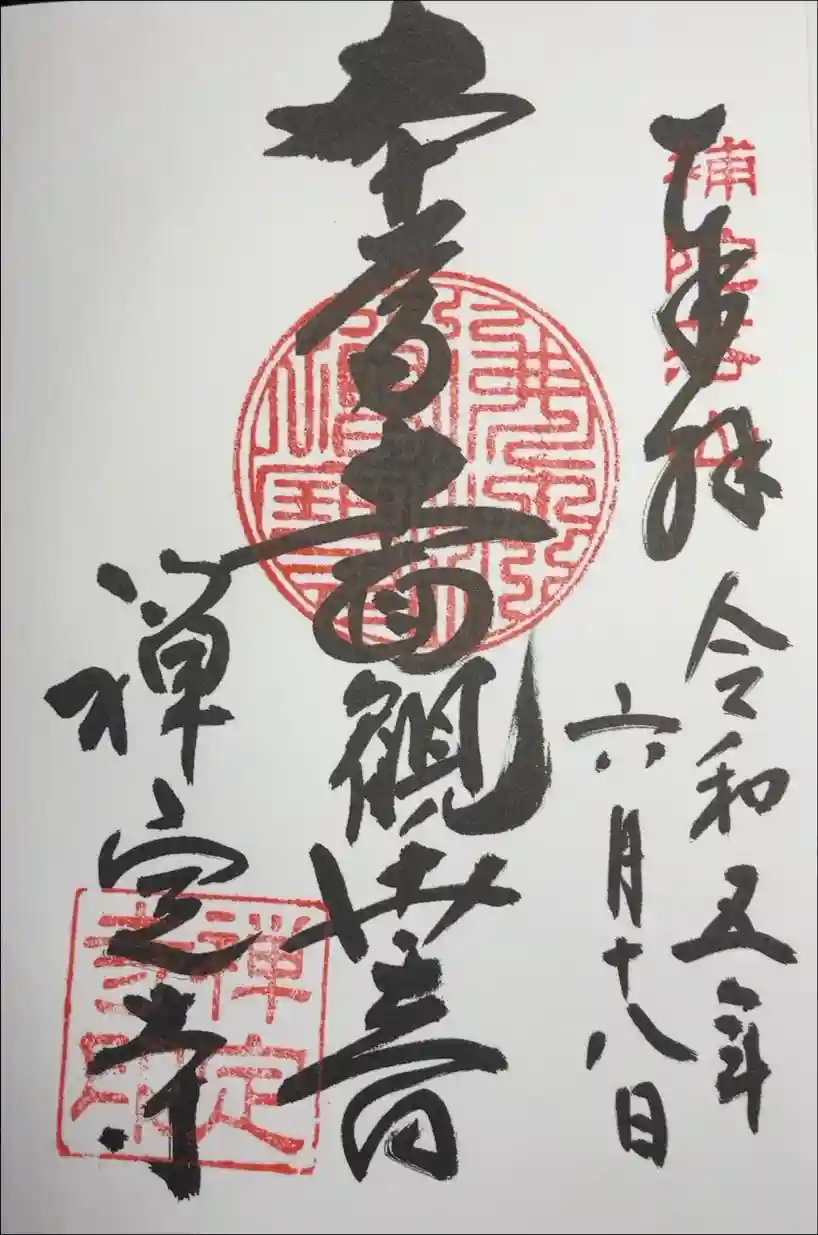 奉拝
補陀落山
令和五年
六月十八日
十一面観世音
禅定寺
禅定
寺印